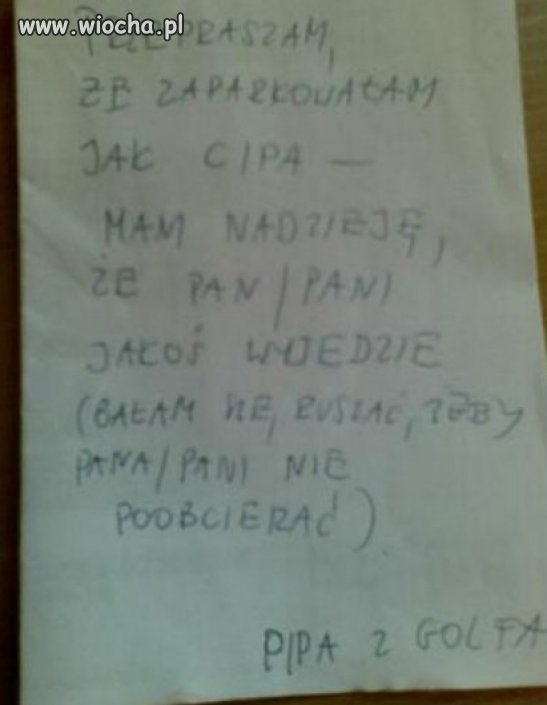 www.wiocha.pl
PRZEPRASZAM,
ŻE ZAPARKOWAŁAM
JAK CIPA —
MAM NADZIEJĘ,
ŻE PAN/PANI
JAKOŚ WYJEDZIE
(BAŁAM SIĘ RUSZAĆ, ŻEBY
PANA/PANI NIE
POOBCIERAĆ)
PIPA Z GOLFA